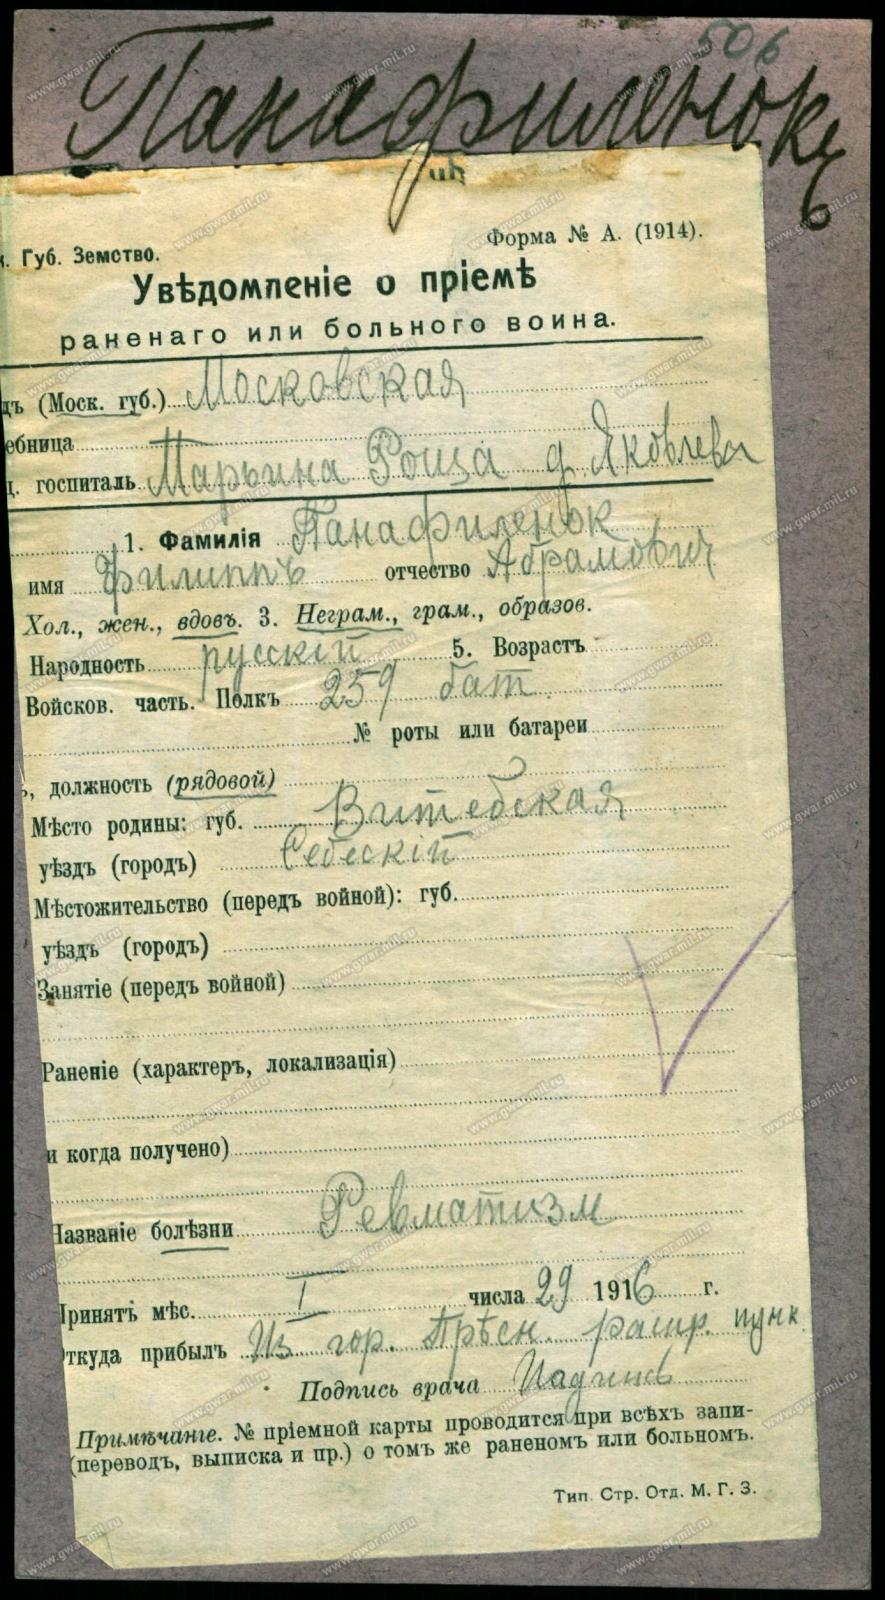 506
Панафиленокъ
Губ. Земство.
Форма № А. (1914).
Увѣдомленіе о пріемѣ
раненаго или больного воина.
дъ (Моск. губ.) Московская
ебница
ц. госпиталь Марьина Роща д. Яковлева
1. Фамилія Панафиленок
имя Филиппъ отчество Абрамович
Хол., жен., вдовъ. 3. Неграм., грам., образов.
Народность русскій 5. Возрастъ
Войсков. часть. Полкъ 259 бат
№ роты или батареи
, должность (рядовой)
Мѣсто родины: губ. Витебская
уѣздъ (городъ) Себескій
Мѣстожительство (передъ войной): губ.
уѣздъ (городъ)
Занятіе (передъ войной)
Раненіе (характеръ, локализація)
и когда получено)
Названіе болѣзни Ревматизм
Принятъ мѣс. I числа 29 1916 г.
Откуда прибылъ Из гор. Прѣсн. распр. пунк
Подпись врача
Примѣчаніе. № пріемной карты проводится при всѣхъ запи-
(переводъ, выписка и пр.) о томъ же раненомъ или больномъ.
Тип. Стр. Отд. М. Г. З.
www.gwar.mil.ru